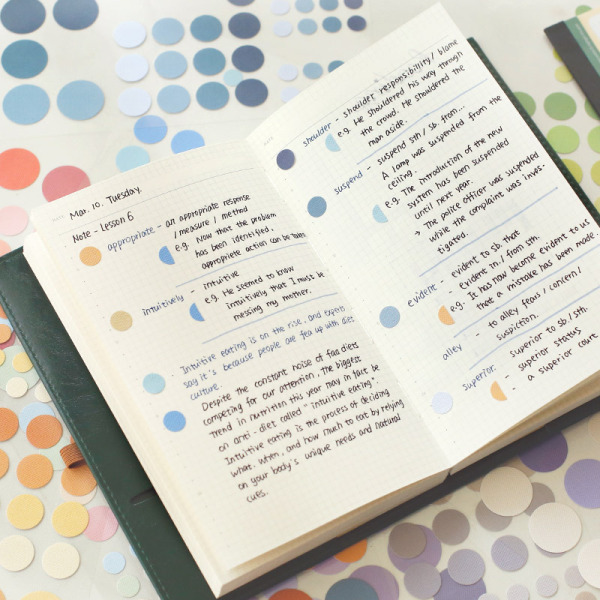 Mar. 10. Tuesday.
Note - Lesson 6
appropriate - an appropriate response
/ measure / method
e.g. Now that the problem
has been identified,
appropriate action can be taken
intuitively - intuitive
e.g. He seemed to know
intuitively that I must be
messing my mother.
Intuitive eating is on the rise, and experts
say it's because people are fed up with diet
culture.
Despite the constant noise of fad diets
competing for our attention, the biggest
trend in nutrition this year may in fact be
an anti-diet called "intuitive eating".
Intuitive eating is the process of deciding
what, when, and how much to eat by relying
on your body's unique needs and natural
cues.
shoulder - shoulder responsibility / blame
e.g. He shouldered his way through
the crowd. He shouldered the
man aside.
suspend - suspend sth / sb. from...
A lamp was suspended from the
ceiling.
e.g. The introduction of the new
system has been suspended
until next year.
→ The police officer was suspended
while the complaint was inves-
tigated.
evident - evident to sb. that
- evident in / from sth.
e.g. It has now become evident to us
that a mistake has been made.
alley - to alley fears / concern /
suspicion.
superior - superior to sb. / sth.
- superior status
- a superior court